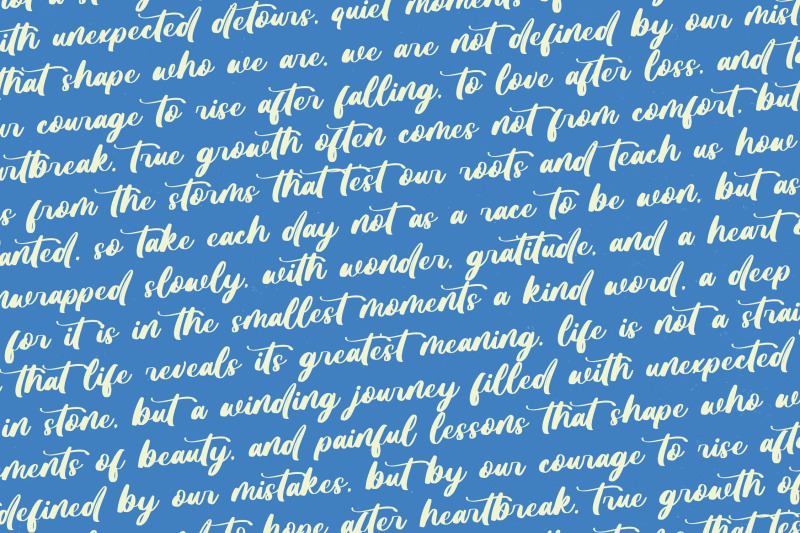 with unexpected detours, quiet moments of
that shape who we are. we are not defined by our
our courage to rise after falling, to love after loss, and
heartbreak. true growth often comes not from comfort, but
from the storms that test our roots and teach us how
so take each day not as a race to be won, but as
unwrapped slowly, with wonder, gratitude, and a heart
for it is in the smallest moments a kind word, a deep
that life reveals its greatest meaning. life is not a
in stone, but a winding journey filled with unexpected
of beauty, and painful lessons that shape who
defined by our mistakes, but by our courage to rise
to hope after heartbreak. true growth
that